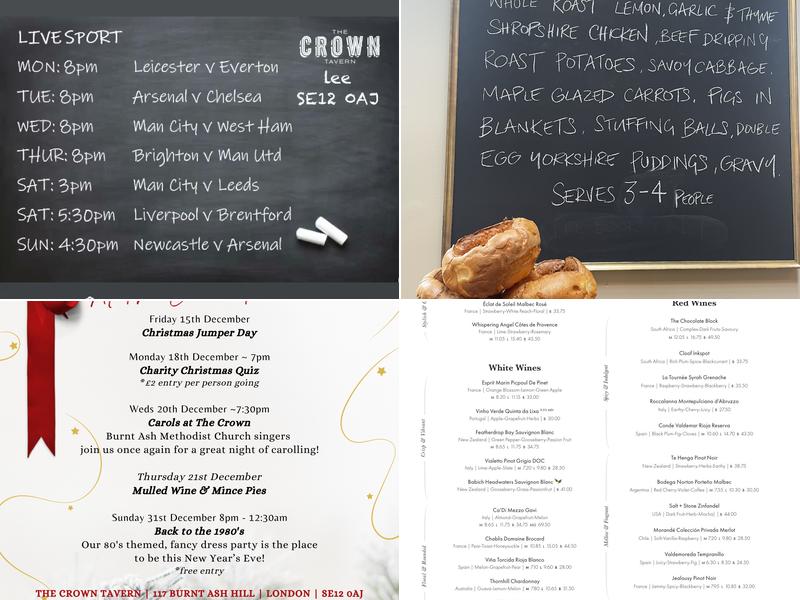 LIVE SPORT
THE
CROWN
TAVERN
lee
SE12 0AJ
MON: 8pm Leicester v Everton
TUE: 8pm Arsenal v Chelsea
WED: 8pm Man City v West Ham
THUR: 8pm Brighton v Man Utd
SAT: 3pm Man City v Leeds
SAT: 5:30pm Liverpool v Brentford
SUN: 4:30pm Newcastle v Arsenal
WHOLE ROAST LEMON, GARLIC & THYME
SHROPSHIRE CHICKEN, BEEF DRIPPING
ROAST POTATOES, SAVOY CABBAGE,
MAPLE GLAZED CARROTS, PIGS IN
BLANKETS, STUFFING BALLS, DOUBLE
EGG YORKSHIRE PUDDINGS, GRAVY.
SERVES 3-4 PEOPLE
Friday 15th December
Christmas Jumper Day
Monday 18th December ~ 7pm
Charity Christmas Quiz
*£2 entry per person going
Weds 20th December ~7:30pm
Carols at The Crown
Burnt Ash Methodist Church singers
join us once again for a great night of carolling!
Thursday 21st December
Mulled Wine & Mince Pies
Sunday 31st December 8pm - 12:30am
Back to the 1980's
Our 80's themed, fancy dress party is the place
to be this New Year's Eve!
*free entry
THE CROWN TAVERN | 117 BURNT ASH HILL | LONDON | SE12 0AJ
Éclat de Soleil Malbec Rosé
France | Strawberry-White Peach-Floral | B 33.75
Whispering Angel Côtes de Provence
France | Lime-Strawberry-Rosemary
M 11.05 L 15.40 B 45.50
White Wines
Crisp & Vibrant
Esprit Marin Picpoul De Pinet
France | Orange Blossom-Lemon-Green Apple
M 8.20 L 11.15 B 33.00
Vinho Verde Quinta da Lixa
Portugal | Apple-Grapefruit-Herbs | B 30.00
Featherdrop Bay Sauvignon Blanc
New Zealand | Green Pepper-Gooseberry-Passion Fruit
M 8.65 L 11.75 B 34.75
Violetta Pinot Grigio DOC
Italy | Lime-Apple-Slate | M 7.20 L 9.80 B 28.50
Babich Headwaters Sauvignon Blanc
New Zealand | Gooseberry-Grass-Passionfruit | B 41.00
Floral & Rounded
Ca'Di Mezzo Gavi
Italy | Almond-Grapefruit-Melon
M 8.65 L 11.75 B 34.75 MG 69.50
Chablis Domaine Brocard
France | Pear-Toast-Honeysuckle | M 10.85 L 15.05 B 44.50
Viña Torcida Rioja Blanco
Spain | Melon-Grapefruit-Pear | M 7.10 L 9.60 B 28.00
Thornhill Chardonnay
Australia | Guava-Lemon-Melon | M 7.80 L 10.65 B 31.50
Red Wines
Spicy & Indulgent
The Chocolate Block
South Africa | Complex-Dark Fruits-Savoury
M 12.05 L 16.75 B 49.50
Cloof Inkspot
South Africa | Rich Plum-Spice-Blackcurrant | B 33.75
La Tournée Syrah Grenache
France | Raspberry-Strawberry-Blackberry | B 33.50
Roccalanna Montepulciano d'Abruzzo
Italy | Earthy-Cherry-Juicy | B 27.50
Conde Valdemar Rioja Reserva
Spain | Black Plum-Fig-Cloves | M 10.60 L 14.70 B 43.50
Mellow & Fragrant
Te Henga Pinot Noir
New Zealand | Strawberry-Herbs-Earthy | B 38.75
Bodega Norton Porteño Malbec
Argentina | Red Cherry-Violet-Coffee | M 7.55 L 10.30 B 30.50
Salt + Stone Zinfandel
USA | Dark Fruit-Herb-Mocha | B 44.00
Morandé Colección Privada Merlot
Chile | Soft-Vanilla-Raspberry | M 7.20 L 9.80 B 28.50
Valdemoreda Tempranillo
Spain | Juicy-Strawberry-Fig | M 6.30 L 8.50 B 24.50
Jealousy Pinot Noir
France | Jammy-Spicy-Blackberry | M 7.95 L 10.85 B 32.00